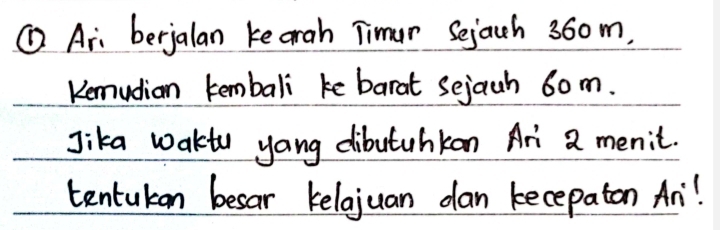 ① Ari berjalan ke arah Timur sejauh 360 m,
Kemudian kembali ke barat sejauh 60 m.
Jika waktu yang dibutuhkan Ari 2 menit.
tentukan besar kelajuan dan kecepatan Ari!